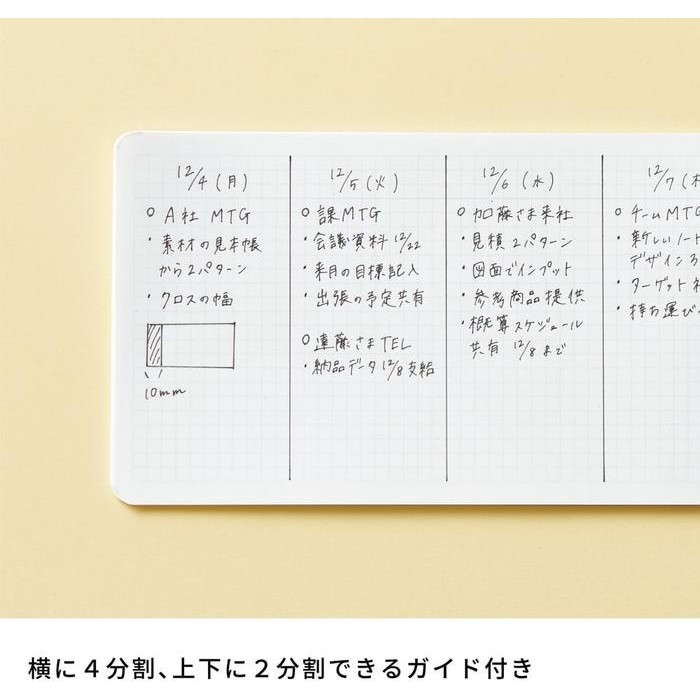 12/4(月)
○ A社 MTG
・素材の見本帳
から2パターン
・クロスの幅
10mm
12/5(火)
○ 課MTG
・会議資料 12/22
・来月の目標記入
・出張の予定共有
○ 遠藤さまTEL
・納品データ 12/8支給
12/6(水)
○ 加藤さま来社
・見積2パターン
・図面でインプット
・参考商品提供
・概算スケジュール
共有 12/8まで
12/7(木
○ チームMTG
・新しいノート
デザイン
・ターゲット
・持ち運び
横に4分割、上下に2分割できるガイド付き